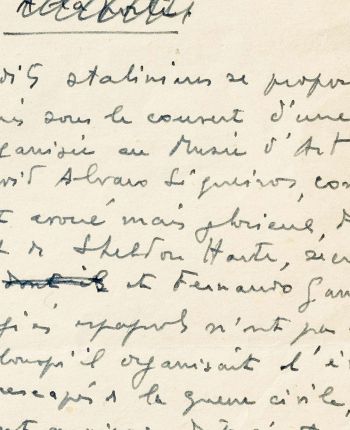 staliniens se propos
sous le couvert d'une
ganisée au Musée d'Art
vid Alvaro Siqueiros, co
t avoué mais glorieux, d
t de Sheldon Harte, secr
et Fernando Gam
giés espagnols n'ont pas
lorsqu'il organisait l'é
rescapés de la guerre civile,